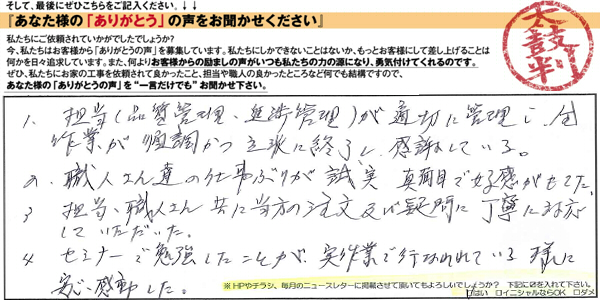 そして、最後にぜひこちらをご記入ください。↓↓
『あなた様の「ありがとう」の声をお聞かせください』
私たちにご依頼されていかがでしたでしょうか?
今、私たちはお客様から「ありがとうの声」を募集しています。私たちにしかできないことはないか、もっとお客様にして差し上げることは
何かを日々追求しています。また、何よりお客様からの励ましの声がいつも私たちの力の源になり、勇気付けてくれるのです。
ぜひ、私たちにお家の工事を依頼されて良かったこと、担当や職人の良かったところなど何でも結構ですので、
あなた様の「ありがとうの声」を“一言だけでも”お聞かせ下さい。
太鼓判
1、担当(品質管理、進捗管理)が適切に管理し、全
作業が順調かつ立派に終了し、感謝している。
2、職人さん達の仕事ぶりが誠実 真面目で好感がもてた。
3 担当、職人さん共に当方の注文及び疑問に丁寧に対応
していただいた。
4 セミナーで勉強したことが、実作業で行なわれている様に
感動した。
※HPやチラシ、毎月のニュースレターに掲載させて頂いてもよろしいでしょうか? 下記に☑を入れて下さい。
はい ロイニシャルならOK ロダメ